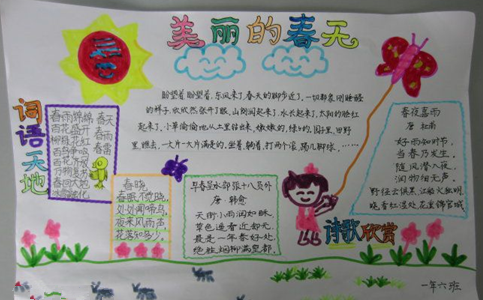 美丽的春天
盼望着,盼望着,东风来了,春天的脚步近了,一切都象刚睡醒
的样子,欣欣然张开了眼。山朗润起来了,水长起来了,太阳的脸红
起来了。小草偷偷地从土里钻出来,嫩嫩的,绿绿的。园子里,田野
里,瞧去,一大片一大片满是的。坐着,躺着,打两个滚,踢几脚球,……
词语天地
春雨绵绵 春天
百花盛开 春雨
百花齐放
万物复苏
春回大地
春晓
春眠不觉晓,
处处闻啼鸟。
夜来风雨声,
花落知多少。
早春呈水部张十八员外
唐 韩愈
天街小雨润如酥,
草色遥看近却无。
最是一年春好处,
绝胜烟柳满皇都。
春夜喜雨
唐 杜甫
好雨知时节,
当春乃发生。
随风潜入夜,
润物细无声。
野径云俱黑,江船火独明。
晓看红湿处,花重锦官城。
诗歌欣赏
一年六班